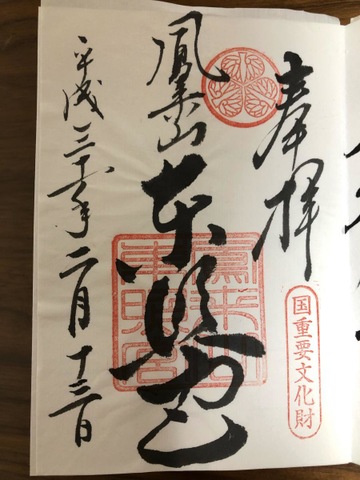 奉拝
国重要文化財
鳳来山
東照宮
鳳来山
東照宮
平成三十一年二月十三日